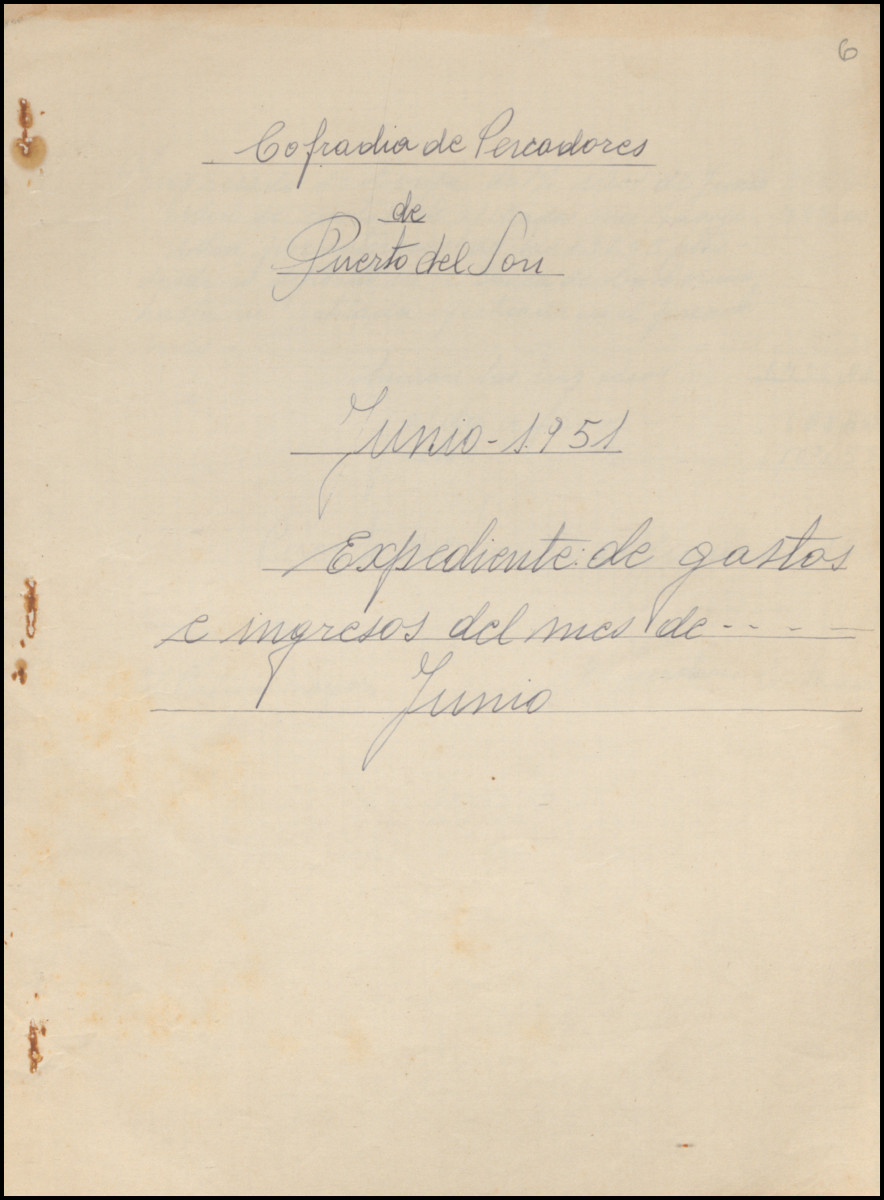 6
Cofradia de Pescadores
de
Puerto del Son
Junio-1.951
Expediente: de gastos
e ingresos del mes de - - - -
Junio